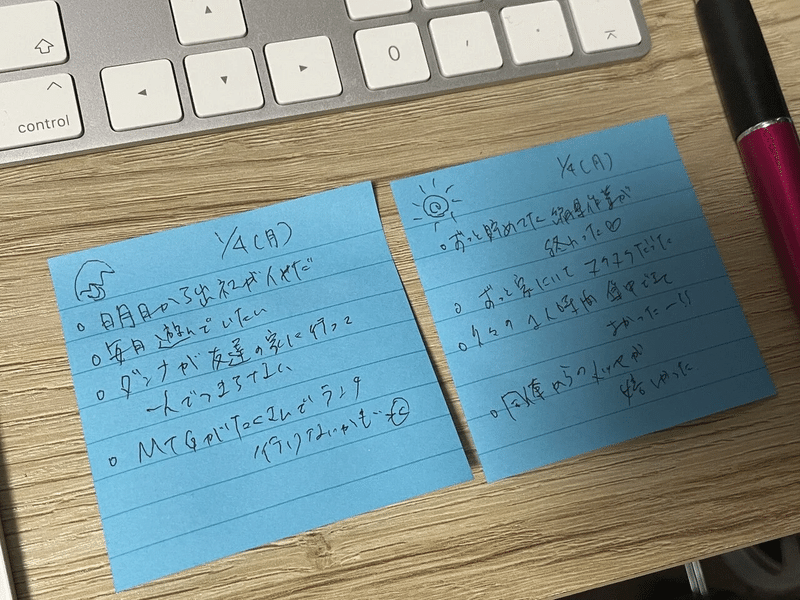 control
0
,
.
1/4(月)
明日から出社がイヤだ
毎日遊んでいたい
ダンナが友達の家に行って
一人でつまらない
MTGがたくさんでランチ
行けないかも…
1/4(月)
ずっと貯めてた 作業が
終わった
ずっと家にいてヌクヌクだった
久々の1人時間 集中できて
よかったー!!
同僚からの が
嬉しかった